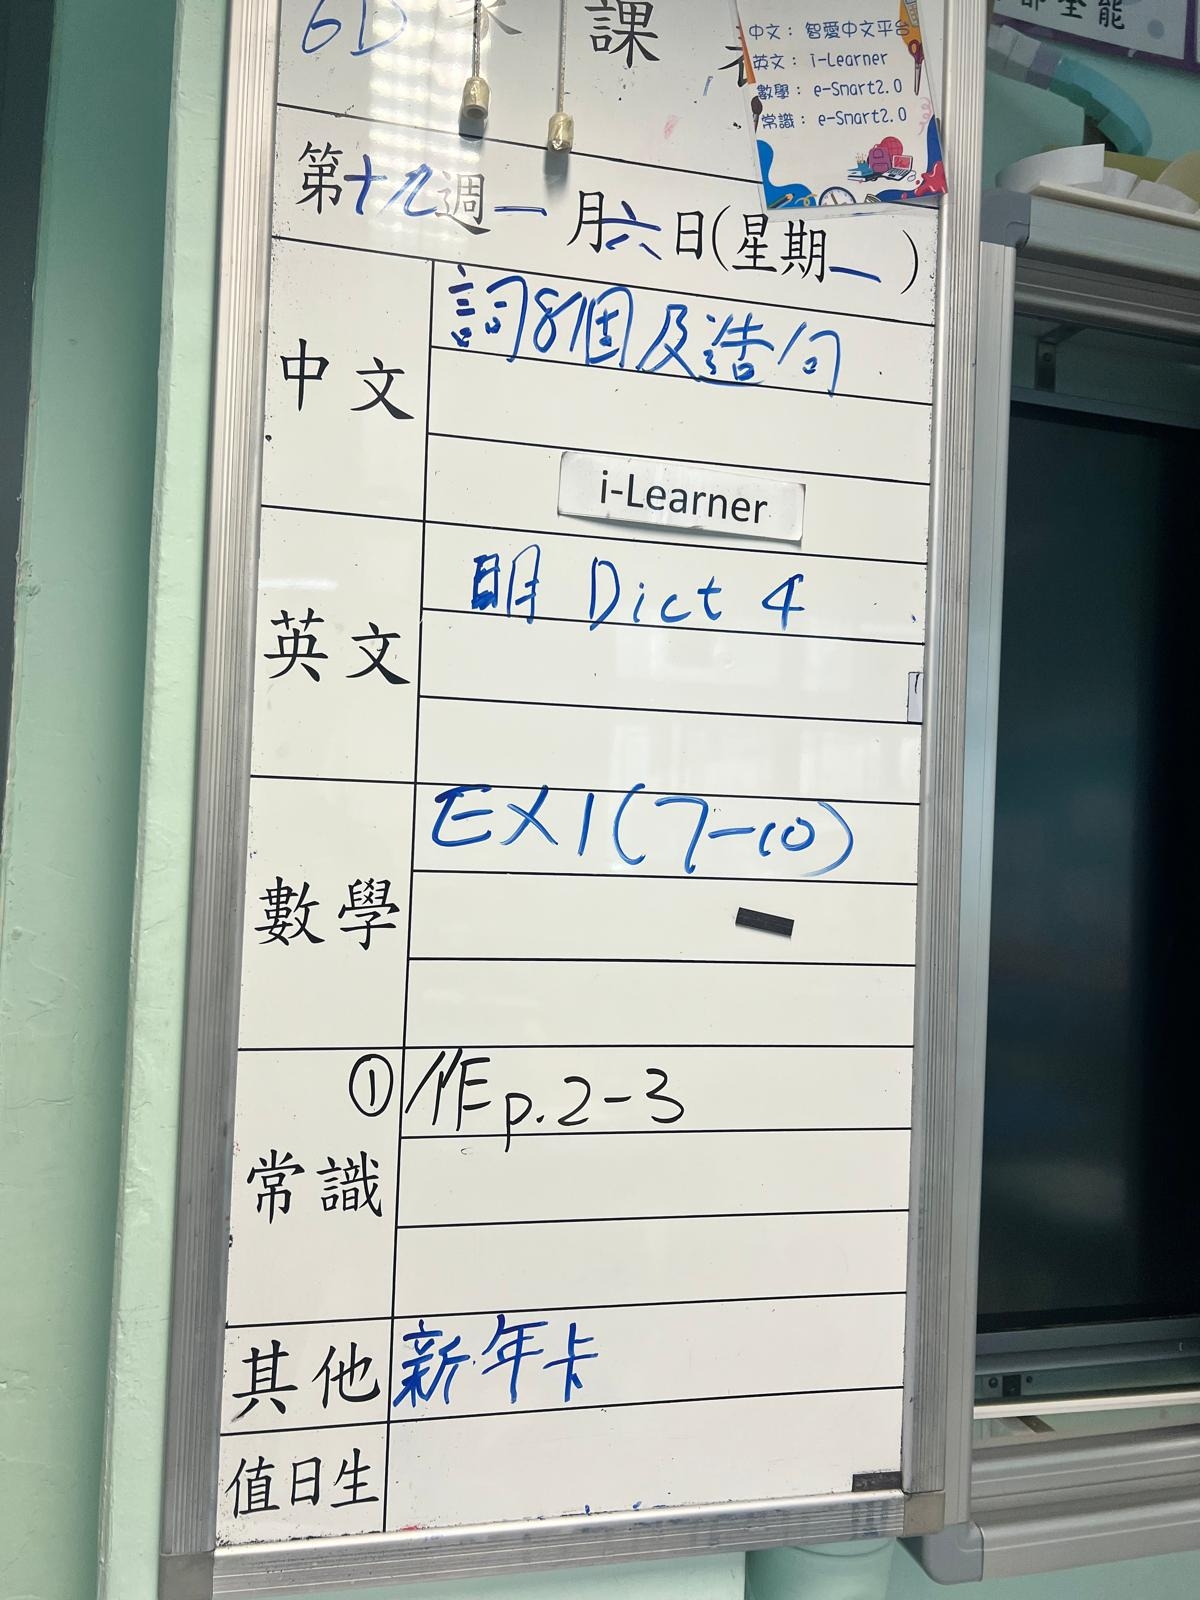 6D 家 課 表
中文：智愛中文平台
英文：i-Learner
數學：e-Smart2.0
常識：e-Smart2.0
第十九週 一月六日(星期一)
中文
詞8個及造句
i-Learner
英文
明 Dict 4
數學
EX1(7-10)
常識
① 作p.2-3
其他
新年卡
值日生
全能